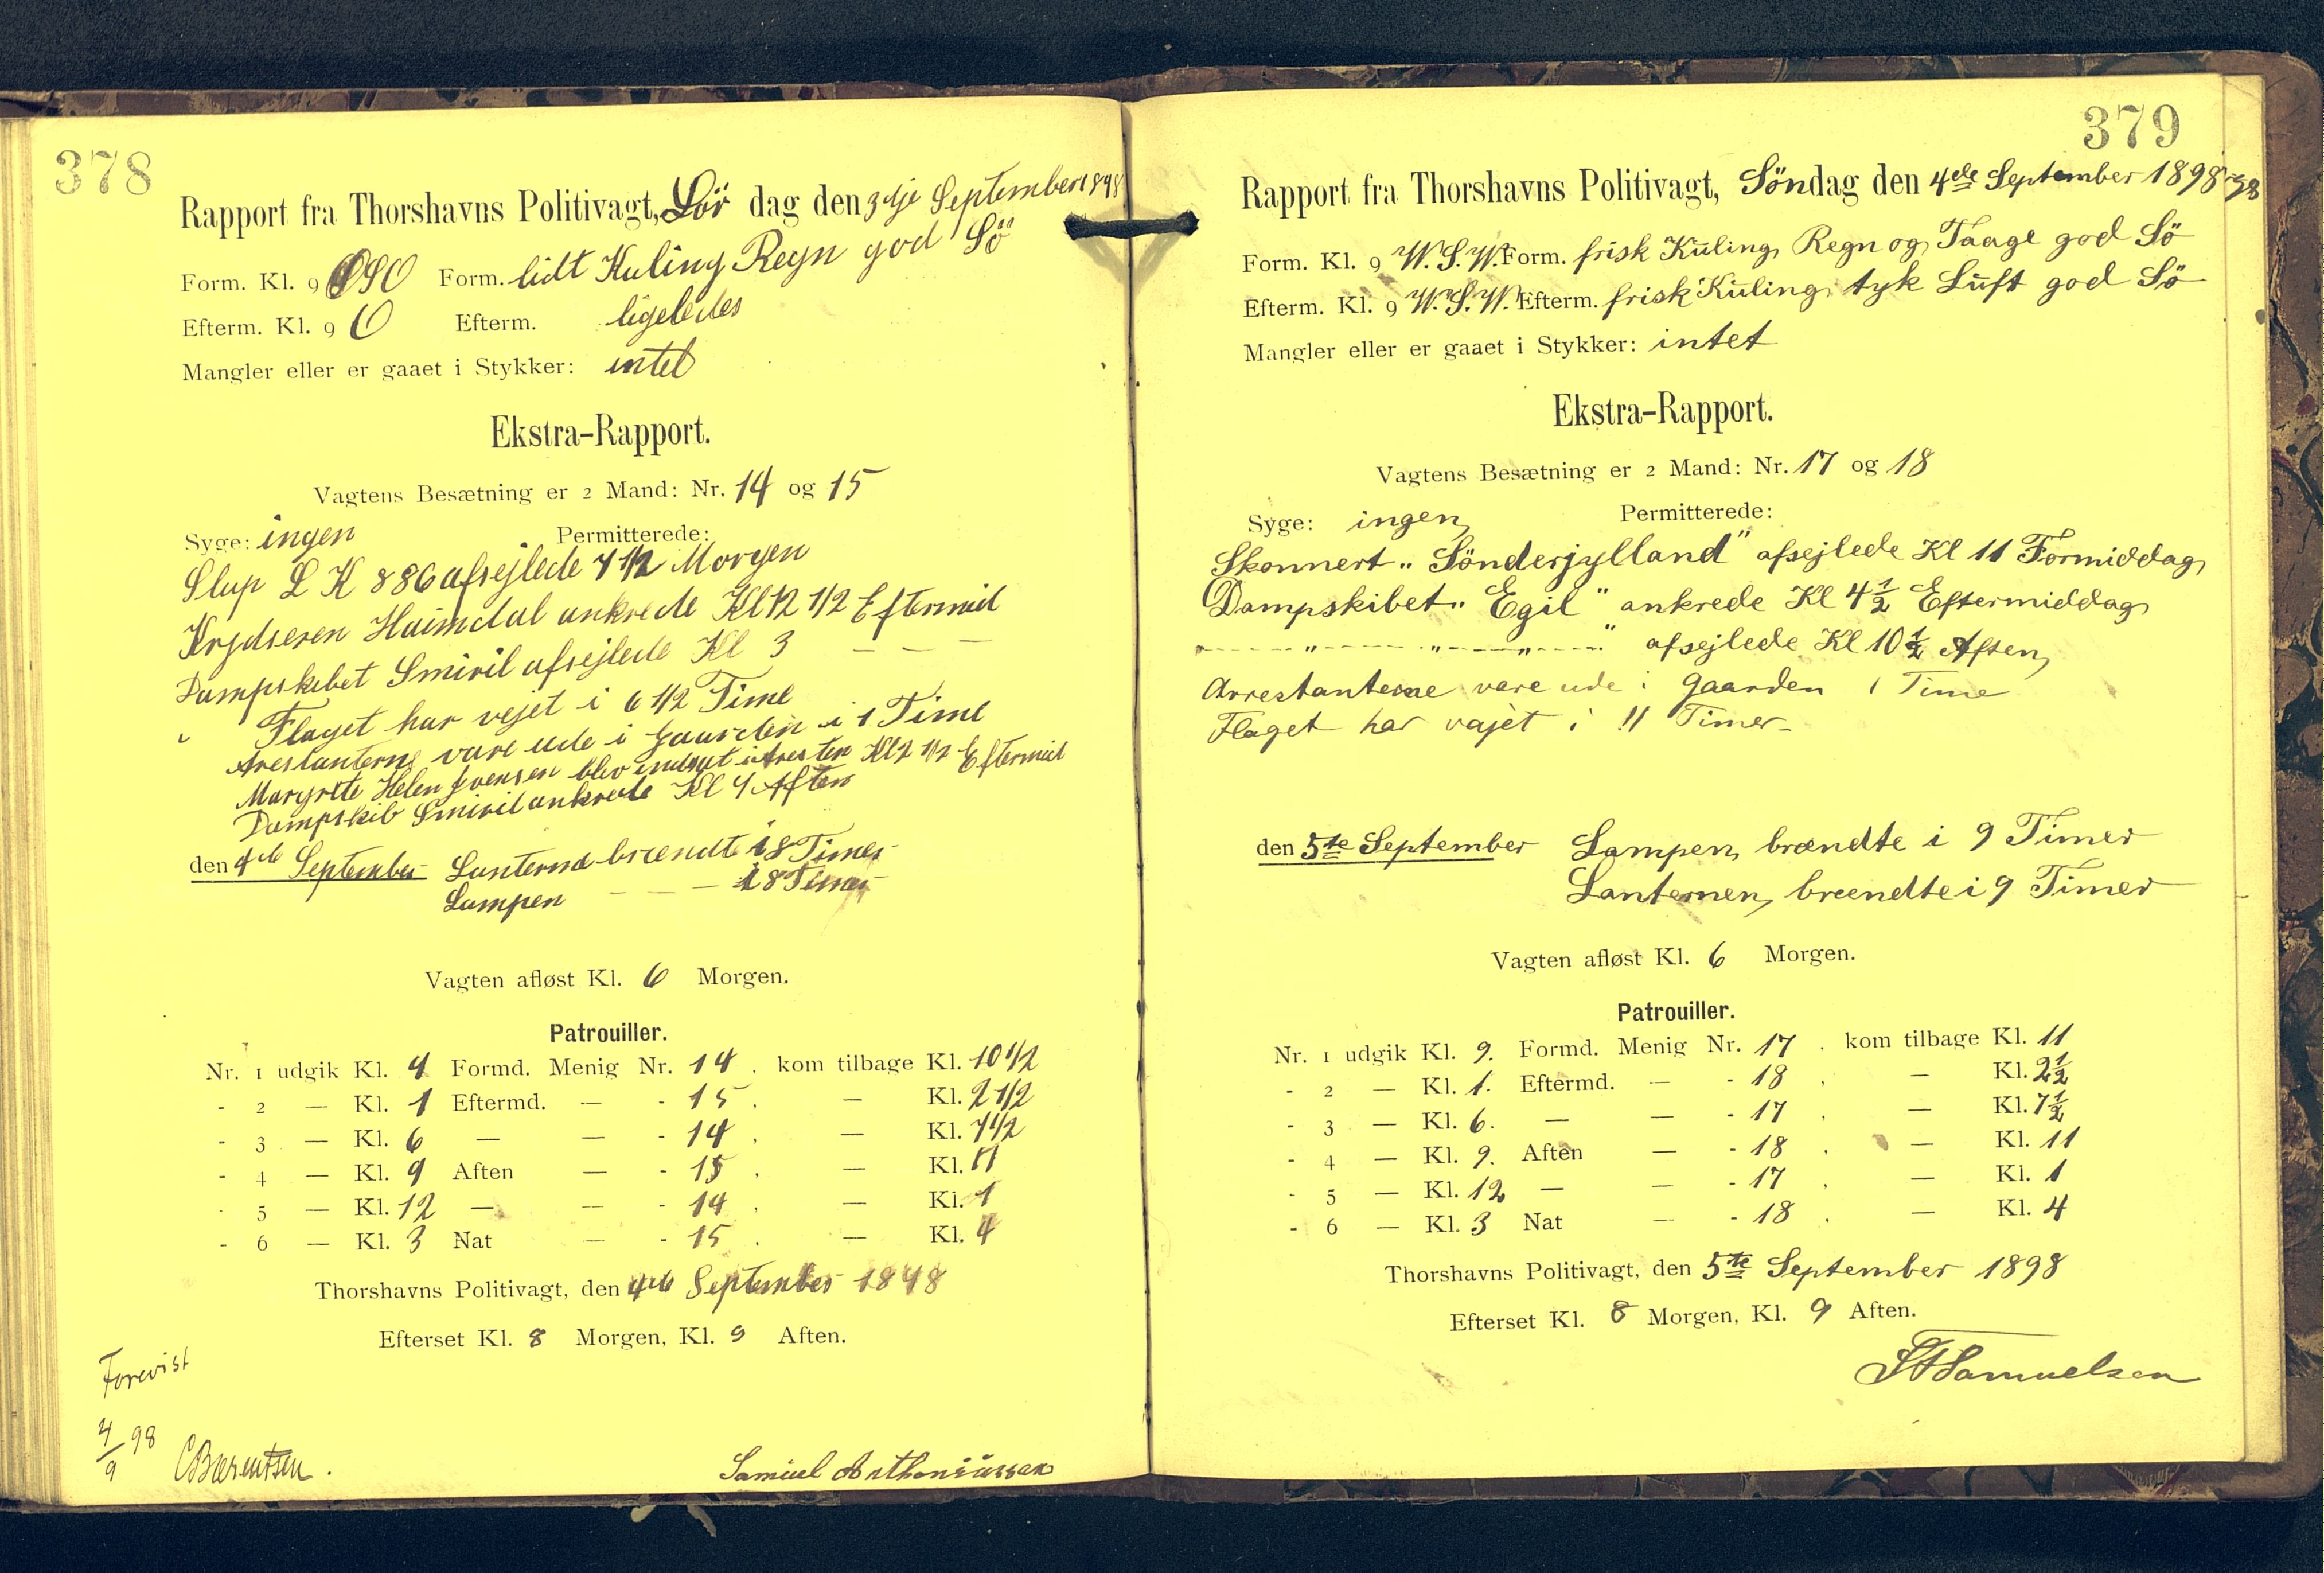 378
Rapport fra Thorshavns Politivagt, Lör dag den 3dje September 1898
Form. Kl. 9 OSO Form. lidt Kuling Regn god Sö
Efterm. Kl. 9 O Efterm. ligeledes
Mangler eller er gaaet i Stykker: intet
Ekstra-Rapport.
Vagtens Besætning er 2 Mand: Nr. 14 og 15
Syge: ingen Permitterede:
Slup L K 886 afsejlede 7 1/2 Morgen
Krydseren Haimdal ankrede Kl 12 1/2 Eftermid
Dampskibet Smiril afsejlede Kl 3 — — —
Flaget har vejet i 6 1/2 Time
Arestanterne vare ude i Gaarden i 1 Time
Margrete Helen Joensen blev indsat i Aresten Kl 2 1/2 Eftermid
Dampskib Smiril ankrede Kl 9 Aften
den 4de September Lanterna brændte i 8 Timer
Lampen — — — i 8 Timer
Vagten afløst Kl. 6 Morgen.
Patrouiller.
Nr. 1 udgik Kl. 9 Formd. Menig Nr. 14 . kom tilbage Kl. 10 1/2
- 2 — Kl. 1 Eftermd. — - 15 . — Kl. 2 1/2
- 3 — Kl. 6 — — - 14 . — Kl. 7 1/2
- 4 — Kl. 9 Aften — - 15 . — Kl. 11
- 5 — Kl. 12 — — - 14 . — Kl. 1
- 6 — Kl. 3 Nat — - 15 . — Kl. 4
Thorshavns Politivagt, den 4de September 1898
Efterset Kl. 8 Morgen, Kl. 9 Aften.
Forevist
4/9 98
CBærentsen.
Samuel Anthoniussen
379
Rapport fra Thorshavns Politivagt, Söndag den 4de September 1898 98
Form. Kl. 9 W.S.W. Form. frisk Kuling, Regn og Taage god Sö
Efterm. Kl. 9 W.S.W. Efterm. frisk Kuling, tyk Luft god Sö
Mangler eller er gaaet i Stykker: intet
Ekstra-Rapport.
Vagtens Besætning er 2 Mand: Nr. 17 og 18
Syge: ingen Permitterede:
Skonnert „Sönderjylland" afsejlede Kl 11 Formiddag
Dampskibet „Egil" ankrede Kl 4 1/2 Eftermiddag
— „ — „ — „ — " afsejlede Kl 10 1/2 Aften
Arrestanterne vare ude i Gaarden 1 Time
Flaget har vajet i 11 Timer
den 5te September Lampen brændte i 9 Timer
Lanternen, brændte i 9 Timer
Vagten afløst Kl. 6 Morgen.
Patrouiller.
Nr. 1 udgik Kl. 9. Formd. Menig Nr. 17 . kom tilbage Kl. 11
- 2 — Kl. 1. Eftermd. — - 18 . — Kl. 2 1/2
- 3 — Kl. 6. — — - 17 . — Kl. 7 1/2
- 4 — Kl. 9. Aften — - 18 . — Kl. 11
- 5 — Kl. 12 — — - 17 . — Kl. 1
- 6 — Kl. 3 Nat — - 18 . — Kl. 4
Thorshavns Politivagt, den 5te September 1898
Efterset Kl. 8 Morgen, Kl. 9 Aften.
Samuelsen